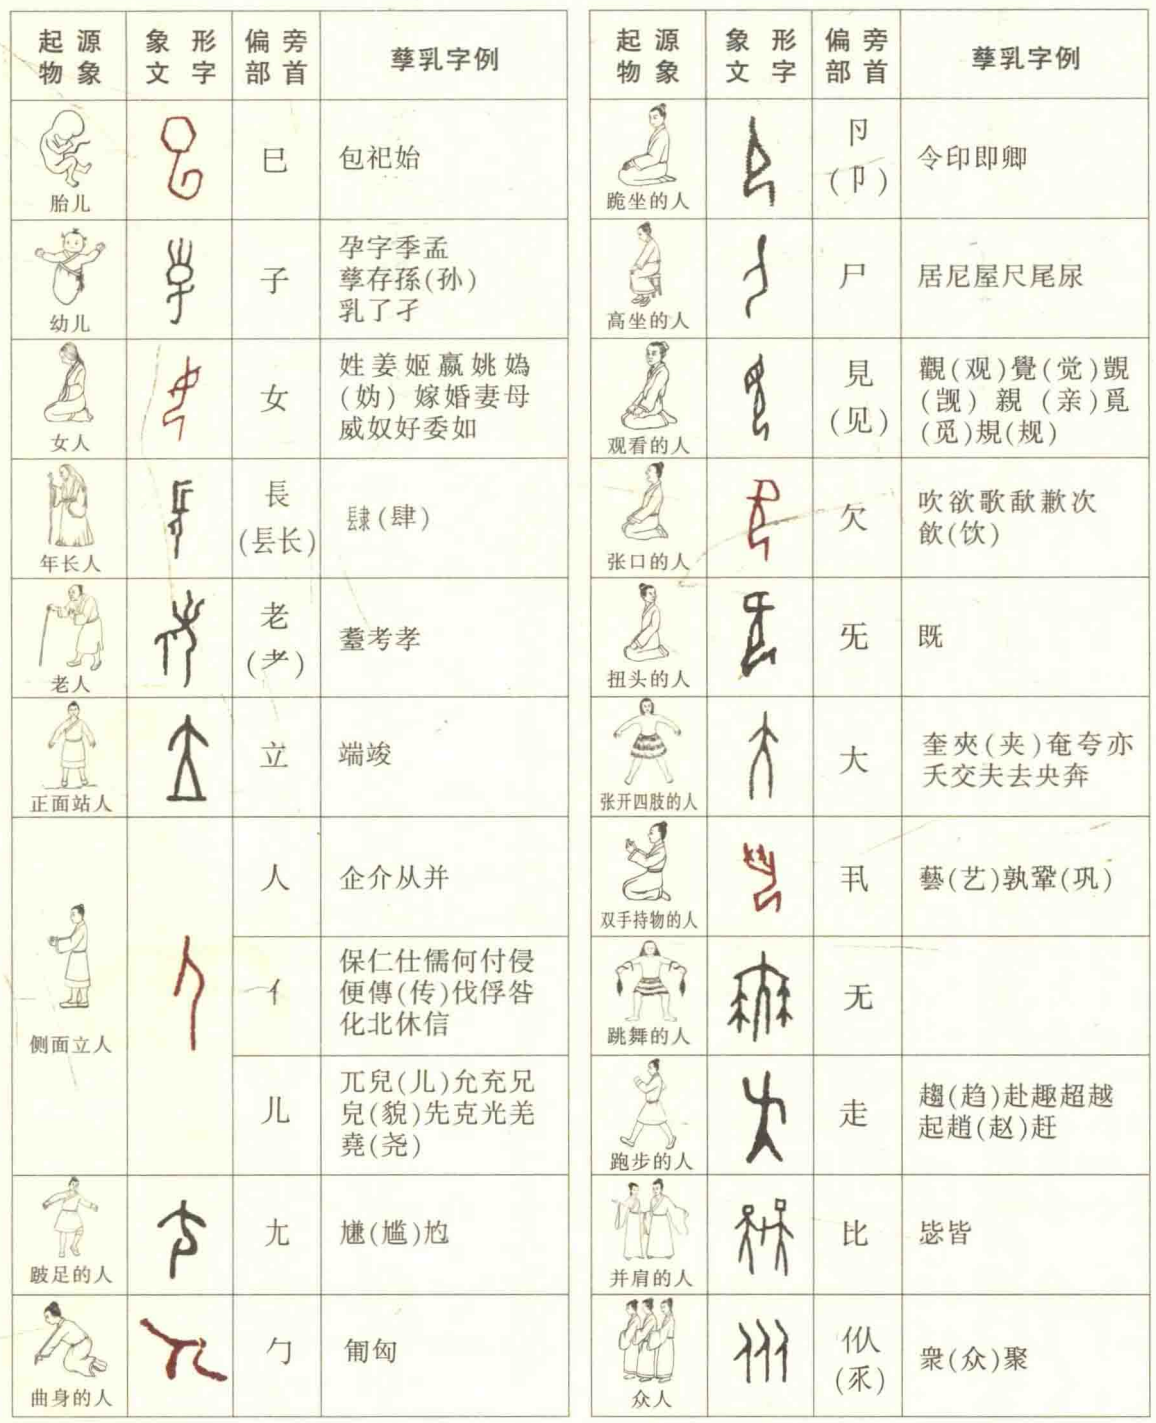 起源 象形 偏旁 孳乳字例
物象 文字 部首
胎儿 巳 包祀始
幼儿 子 孕字季孟
孳存孫(孙)
乳了孑
女人 女 姓姜姬嬴姚嬀
(妫) 嫁婚妻母
威奴好委如
年长人 長 肆(肆)
(镸长)
老人 老 耋考孝
(耂)
正面站人 立 端竣
侧面立人
人 企介从并
亻 保仁仕儒何付侵
便傳(传)伐俘咎
化北休信
儿 兀兒(儿)允充兄
皃(貌)先克光羌
堯(尧)
跛足的人 尢 尲(尴)尥
曲身的人 勹 匍匈
起源 象形 偏旁 孳乳字例
物象 文字 部首
跪坐的人 卪 令印即卿
(卩)
高坐的人 尸 居尼屋尺尾尿
观看的人 見 觀(观)覺(觉)覬
(见) (觊) 親 (亲)覓
(觅)規(规)
张口的人 欠 吹欲歌歃歉次
飲(饮)
扭头的人 旡 既
张开四肢的人 大 奎夾(夹)奄夸亦
夭交夫去央奔
双手持物的人 丮 藝(艺)孰鞏(巩)
跳舞的人 无
跑步的人 走 趨(趋)赴趣超越
起趙(赵)赶
并肩的人 比 毖皆
众人 㐺 衆(众)聚
(乑)